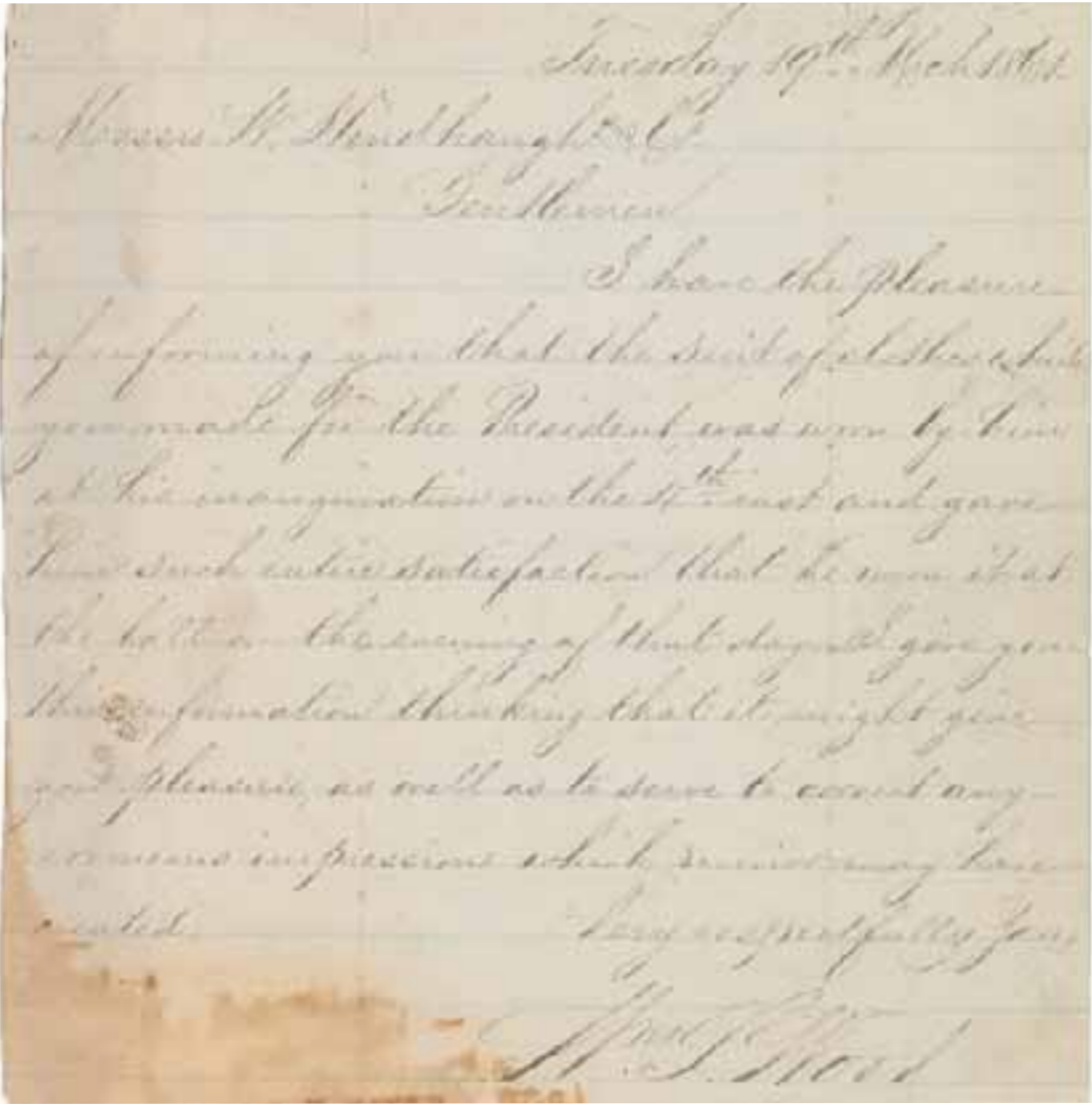 Tuesday 19th Mch 1861
Messrs. W. & Co.
Gentlemen
I have the pleasure
of informing you that the suit of clothes which
you made for the President, was worn by him
at his inauguration on the 4th inst and gave
him such entire satisfaction that he wore it at
the ball on the evening of that day. I give you
this information thinking that it might give
you pleasure, as well as to serve to correct any
erroneous impressions which may have
created. Very respectfully Yours
Wm. S. Wood